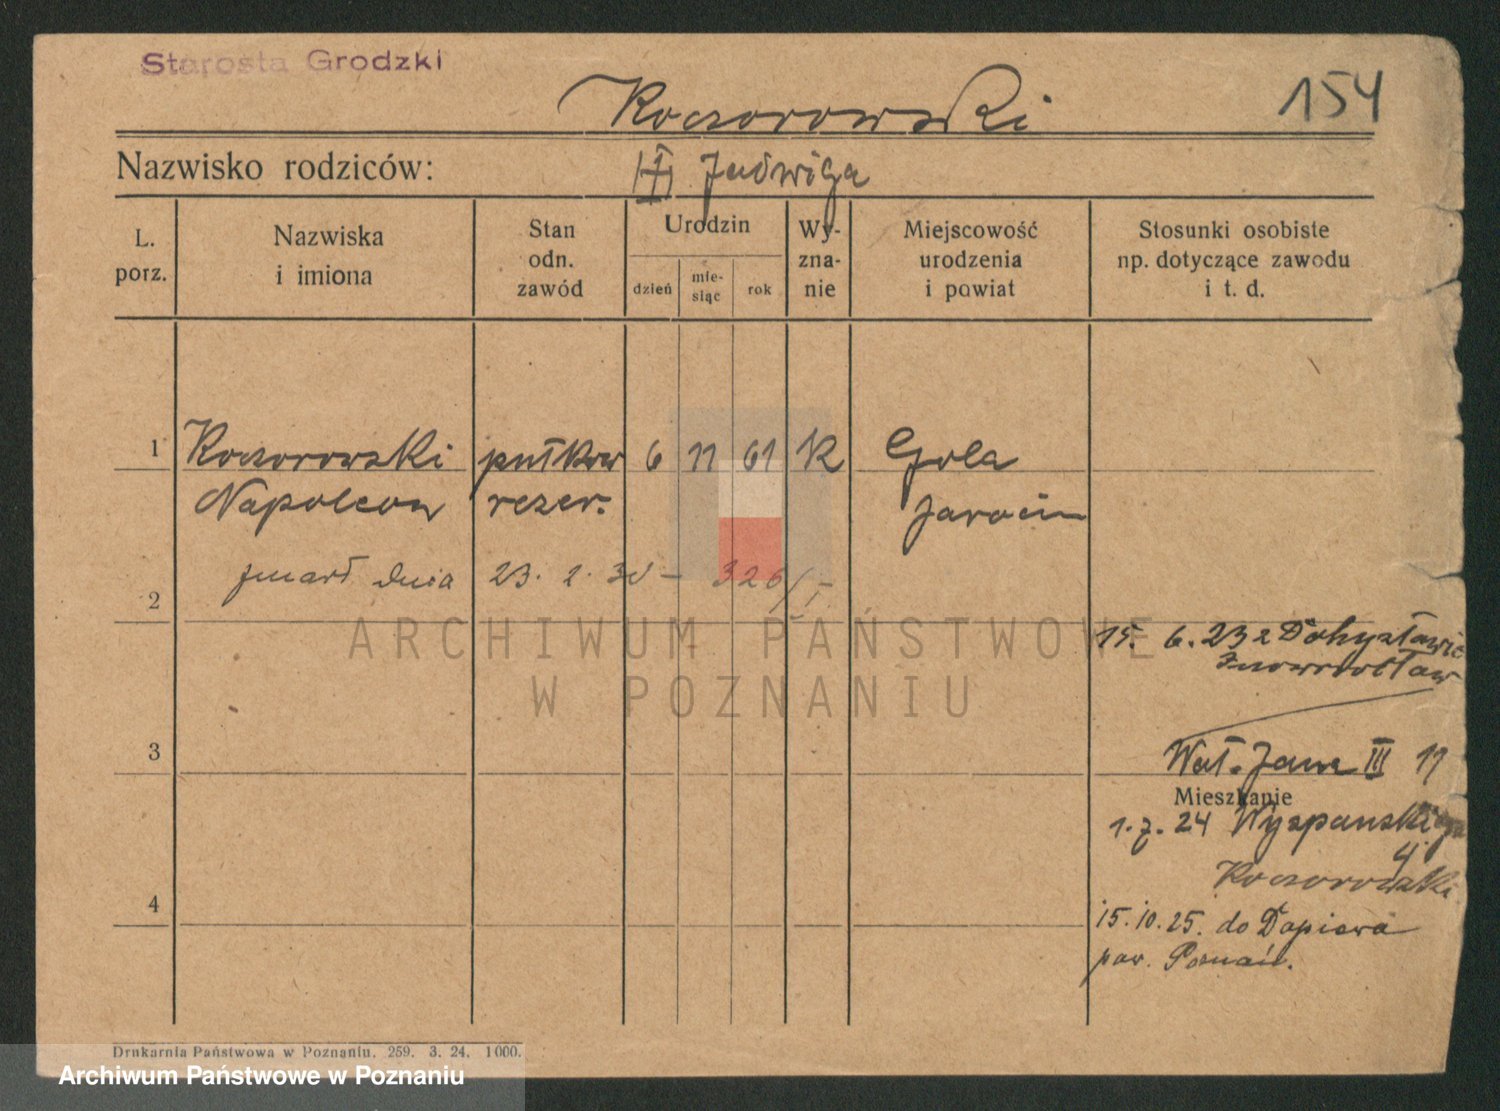 Starosta Grodzki
Koczorowski
154
Nazwisko rodziców:
Jadwiga
L.
porz.
Nazwiska
i imiona
Stan
odn.
zawód
Urodzin
dzień
mie-
siąc
rok
Wy-
zna-
nie
Miejscowość
urodzenia
i powiat
Stosunki osobiste
np. dotyczące zawodu
i t. d.
1
Koczorowski
Napoleon
pułkow
rezer.
6
11
61
K
Gola
Jarocin
zmarł dnia 23. 2. 30 - 326/I
2
15. 6. 23 z
ARCHIWUM PAŃSTWOWE
W POZNANIU
3
Wał. Jana III 11
Mieszkanie
1. 7. 24 Wyspańskiego
4
Koczorowski
4
15. 10. 25. do Dopiewa
pow. Poznań.
Drukarnia Państwowa w Poznaniu. 259. 3. 24. 1000.
Archiwum Państwowe w Poznaniu